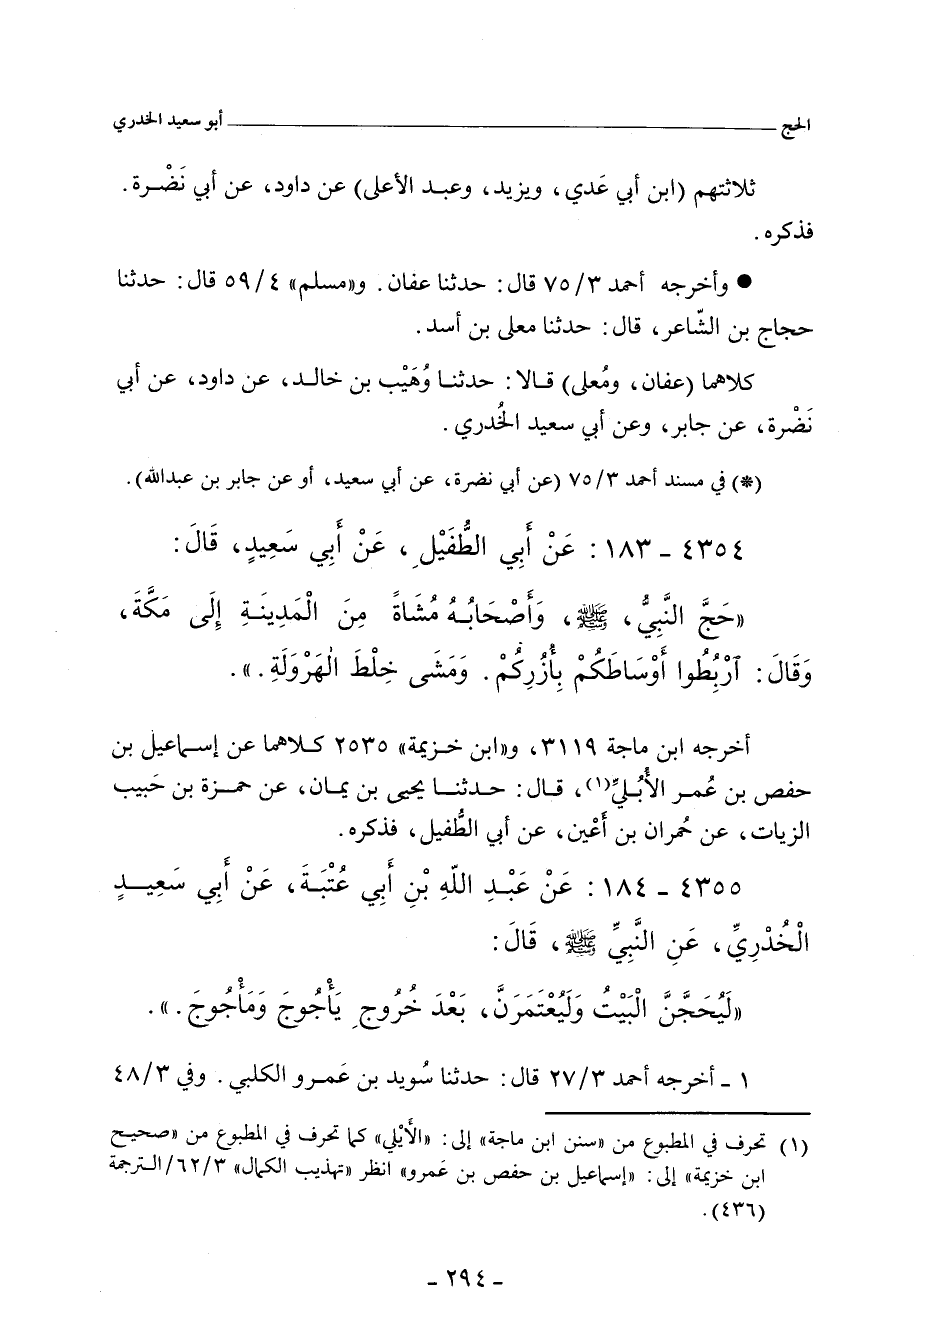 الحج ــــــــــــــــــــــــــــــــ أبو سعيد الخدري
ثلاثتهم (ابن أبي عَدي، ويزيد، وعبد الأعلى) عن داود، عن أبي نَضْرة.
فذكره.
● وأخرجه أحمد ٣/ ٧٥ قال: حدثنا عفان. و«مسلم» ٤/ ٥٩ قال: حدثنا
حجاج بن الشّاعر، قال: حدثنا معلى بن أسد.
كلاهما (عفان، ومُعلى) قالا: حدثنا وُهَيْب بن خالد، عن داود، عن أبي
نَضْرة، عن جابر، وعن أبي سعيد الخُدري.
(*) في مسند أحمد ٣/ ٧٥ (عن أبي نضرة، عن أبي سعيد، أو عن جابر بن عبدالله).
٤٣٥٤ ـ ١٨٣: عَنْ أَبِي الطُّفَيْلِ، عَنْ أَبِي سَعِيدٍ، قَالَ:
«حَجَّ النَّبِيُّ، ﷺ، وَأَصْحَابُهُ مُشَاةً مِنَ الْمَدِينَةِ إِلَى مَكَّةَ،
وَقَالَ: ٱرْبُطُوا أَوْسَاطَكُمْ بِأُزُرِكُمْ. وَمَشَى خِلْطَ الْهَرْوَلَةِ.».
أخرجه ابن ماجة ٣١١٩، و«ابن خزيمة» ٢٥٣٥ كلاهما عن إسماعيل بن
حفص بن عُمر الأُبُليِّ(١)، قال: حدثنا يحيى بن يمان، عن حمزة بن حَبيب
الزيات، عن حُمران بن أَعْين، عن أبي الطُّفيل، فذكره.
٤٣٥٥ ـ ١٨٤: عَنْ عَبْدِ اللّٰهِ بْنِ أَبِي عُتْبَةَ، عَنْ أَبِي سَعِيدٍ
الْخُدْرِيِّ، عَنِ النَّبِيِّ ﷺ، قَالَ:
«لَيُحَجَّنَّ الْبَيْتُ وَلَيُعْتَمَرَنَّ، بَعْدَ خُرُوجِ يَأْجُوجَ وَمَأْجُوجَ.».
١ ـ أخرجه أحمد ٣/ ٢٧ قال: حدثنا سُويد بن عَمرو الكلبي. وفي ٣/ ٤٨
(١) تحرف في المطبوع من «سنن ابن ماجة» إلى: «الأَيْلي» كما تحرف في المطبوع من «صحيح
ابن خزيمة» إلى: «إسماعيل بن حفص بن عمرو» انظر «تهذيب الكمال» ٣/ ٦٢/ الترجمة
(٤٣٦).
ـ ٢٩٤ ـ